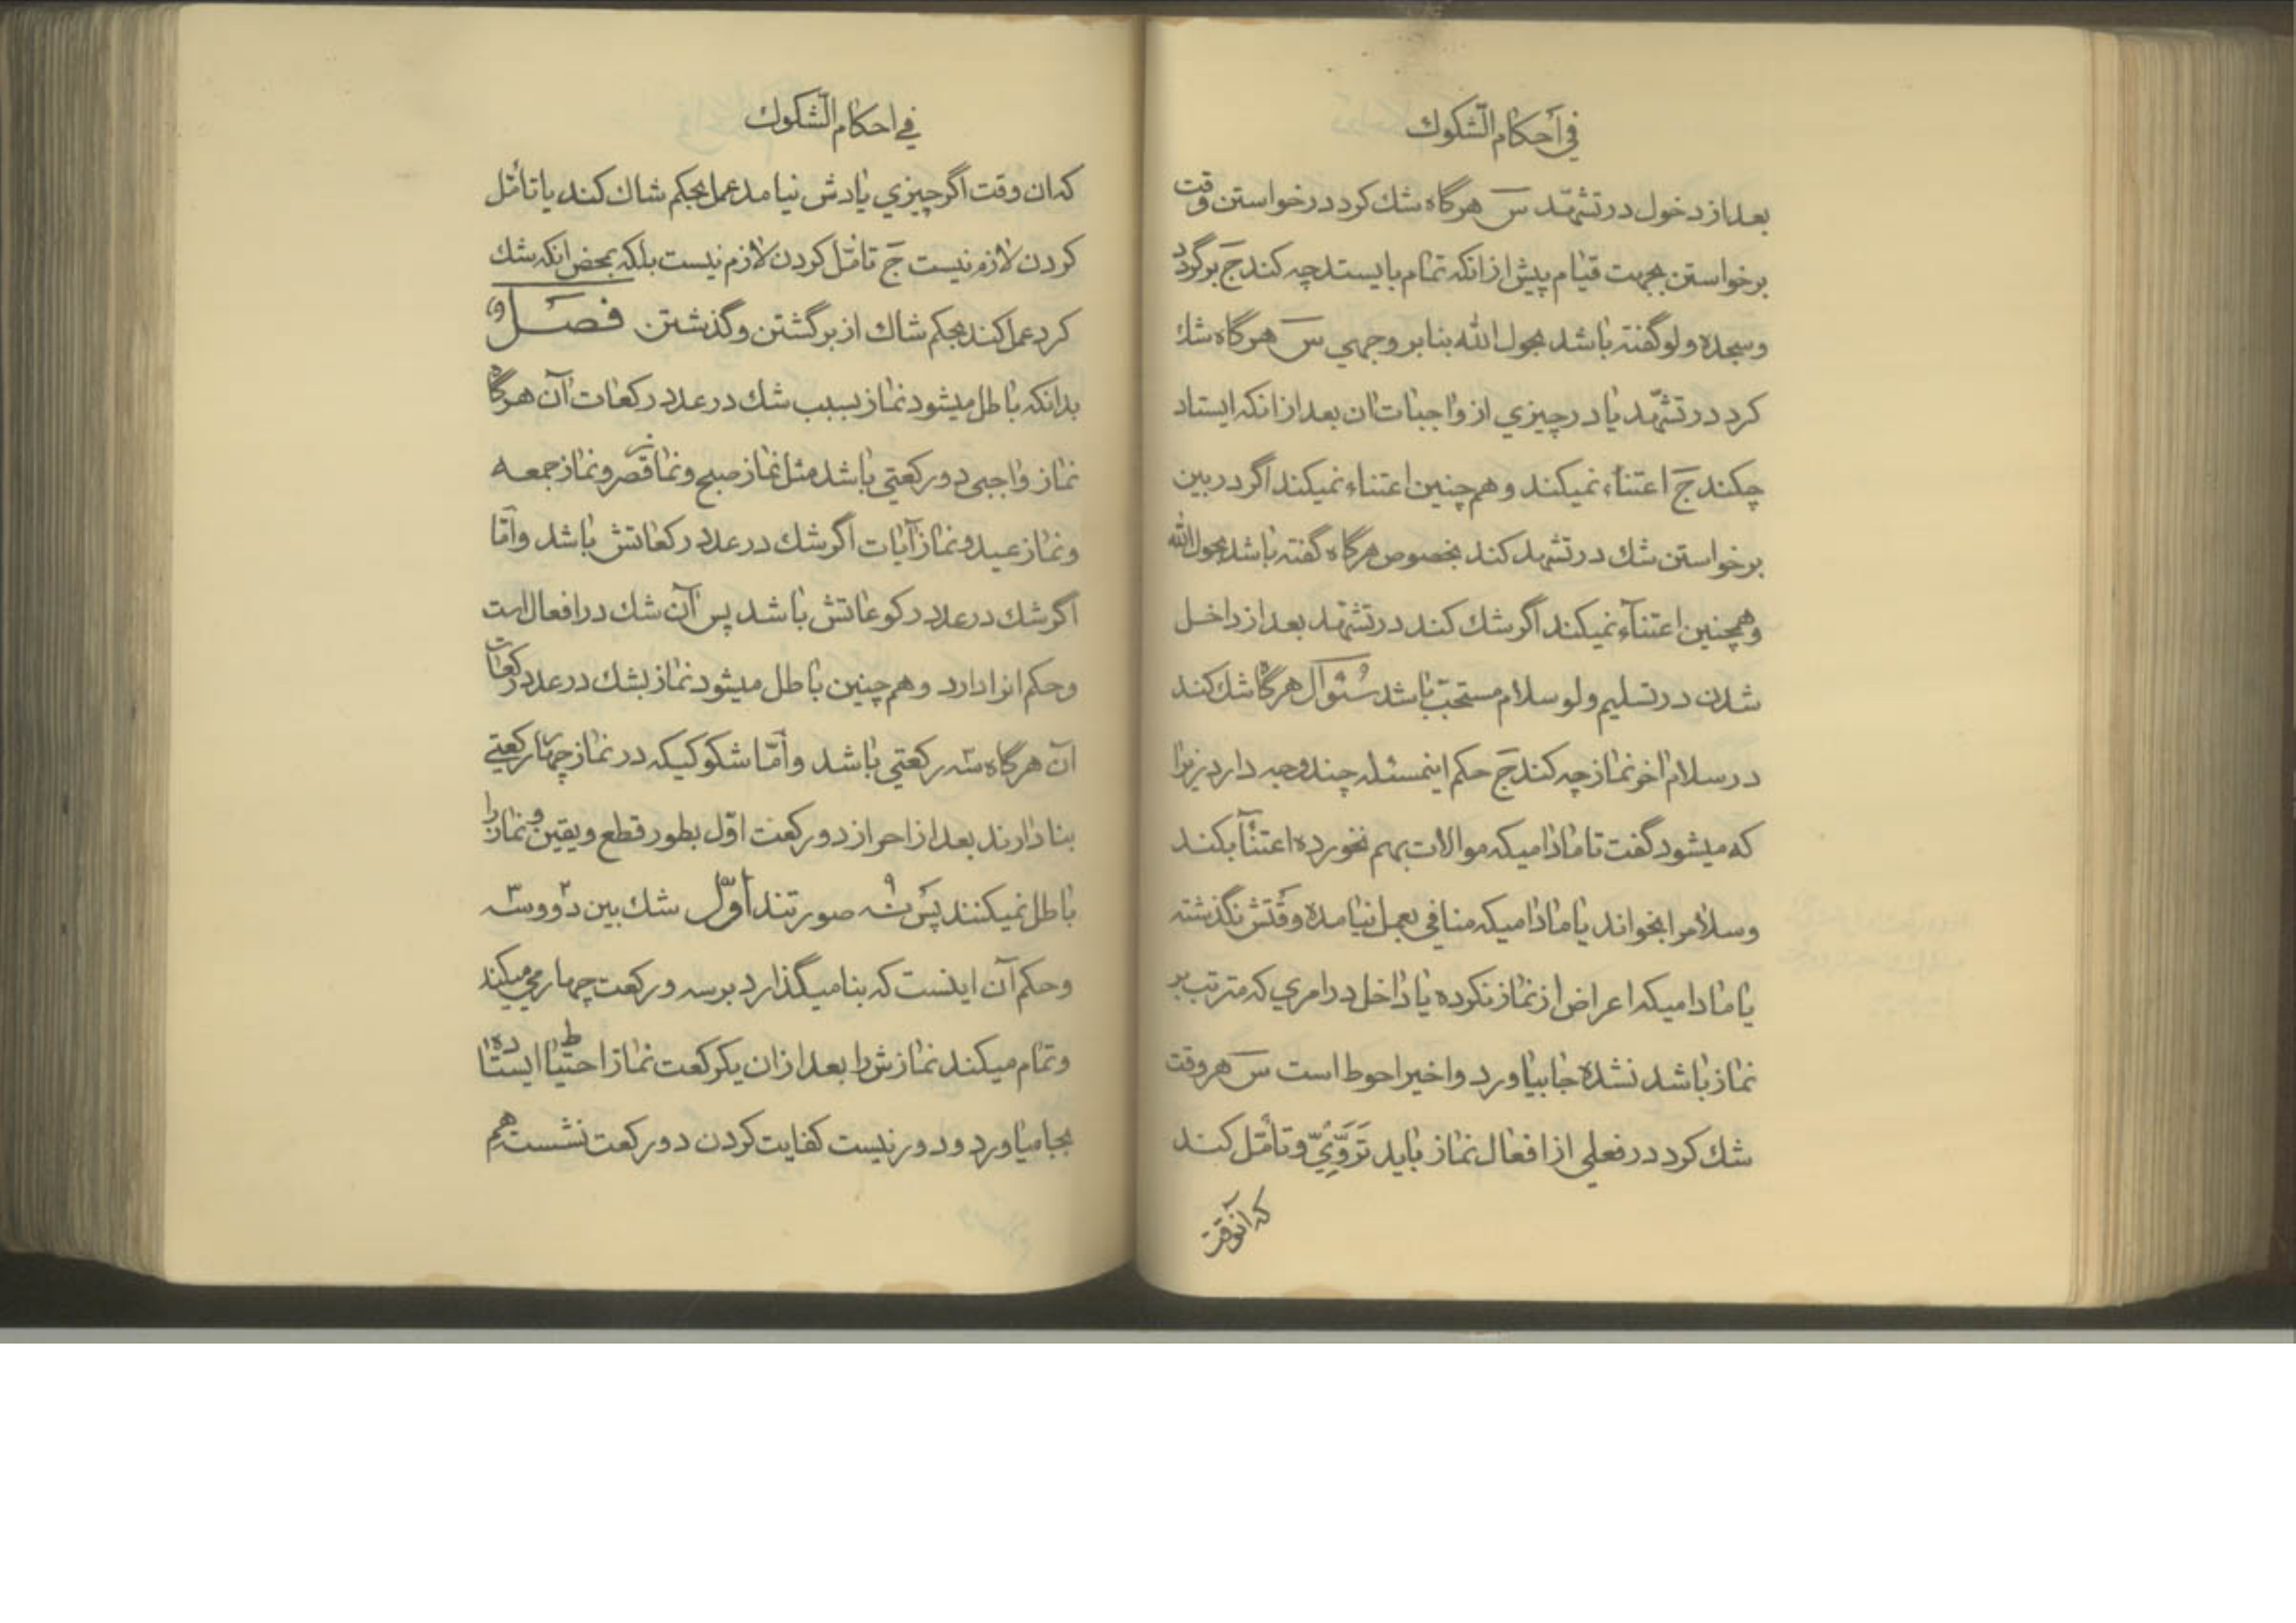 في أحكام الشكوك
بعد از دخول در تشهّد س هرگاه شك كرد در خواستن وقت
برخواستن بجهت قيام پيش از انكه تمام بايستد چه كند ج برگردد
وسجده ولو گفته باشد بحول الله بنابر وجهي س هرگاه شك
كرد در تشهّد يا در چيزي از واجبات ان بعد از انكه ايستاد
چكند ج اعتناء نميكند وهم چنين اعتناء نميكند اگر در بين
برخواستن شك در تشهد كند بخصوص هرگاه گفته باشد بحول الله
وهمچنين اعتنآء نميكند اگر شك كند در تشهّد بعد از داخل
شدن در تسليم ولو سلام مستحبّ باشد سُئوآل هرگاه شك كند
در سلام اخر نماز چه كند ج حكم اينمسئله چند وجه دارد زيرا
كه ميشود گفت تا مادا ميكه موالات بهم نخورده اعتنآ بكند
وسلامرا بخواند يا مادا ميكه منافي بعمل نيامده وقتش نگذشته
يا مادا ميكه اعراض از نماز نكرده يا داخل در امري كه مترتب بر
نماز باشد نشده جا بياورد واخير احوط است س هر وقت
شك كرد در فعلي از افعال نماز بايد تَرَوّيّ وتأمّل كند
كه آنوقت
في احكام الشّكوك
كه ان وقت اگر چيزي يادش نيامد عمل بحكم شاك كند يا تأمّل
كردن لازم نيست ج تامّل كردن لازم نيست بلكه بمحض انكه شك
كرد عمل كند بحكم شاك از برگشتن وگذشتن فصل
بدانكه باطل ميشود نماز بسبب شك در عدد ركعات آن هرگاه
نماز واجبى دو ركعتي باشد مثل نماز صبح ونماز قصر ونماز جمعه
ونماز عيد ونماز آيات اگر شك در عدد ركعاتش باشد وآمّا
اگر شك در عدد ركوعاتش باشد پس آن شك در افعال است
وحكم انرا دارد وهم چنين باطل ميشود نماز بشك در عدد ركعات
آن هرگاه سه ركعتي باشد وأمّا شكوكيكه در نماز چهار ركعتي
بنا دارند بعد از احراز دو ركعت اوّل بطور قطع ويقين ونماز را
باطل نميكنند پس نُه ۹ صورتند اوّل شك بين دو ۲ وسه ۳
وحكم آن اينست كه بنا ميگذارد بر سه وركعت چهارمي ميكند
وتمام ميكند نمازش را بعد از ان يكركعت نماز احتياط ايستاده
بجا مياورد ودور نيست كفايت كردن دو ركعت نشسته هم